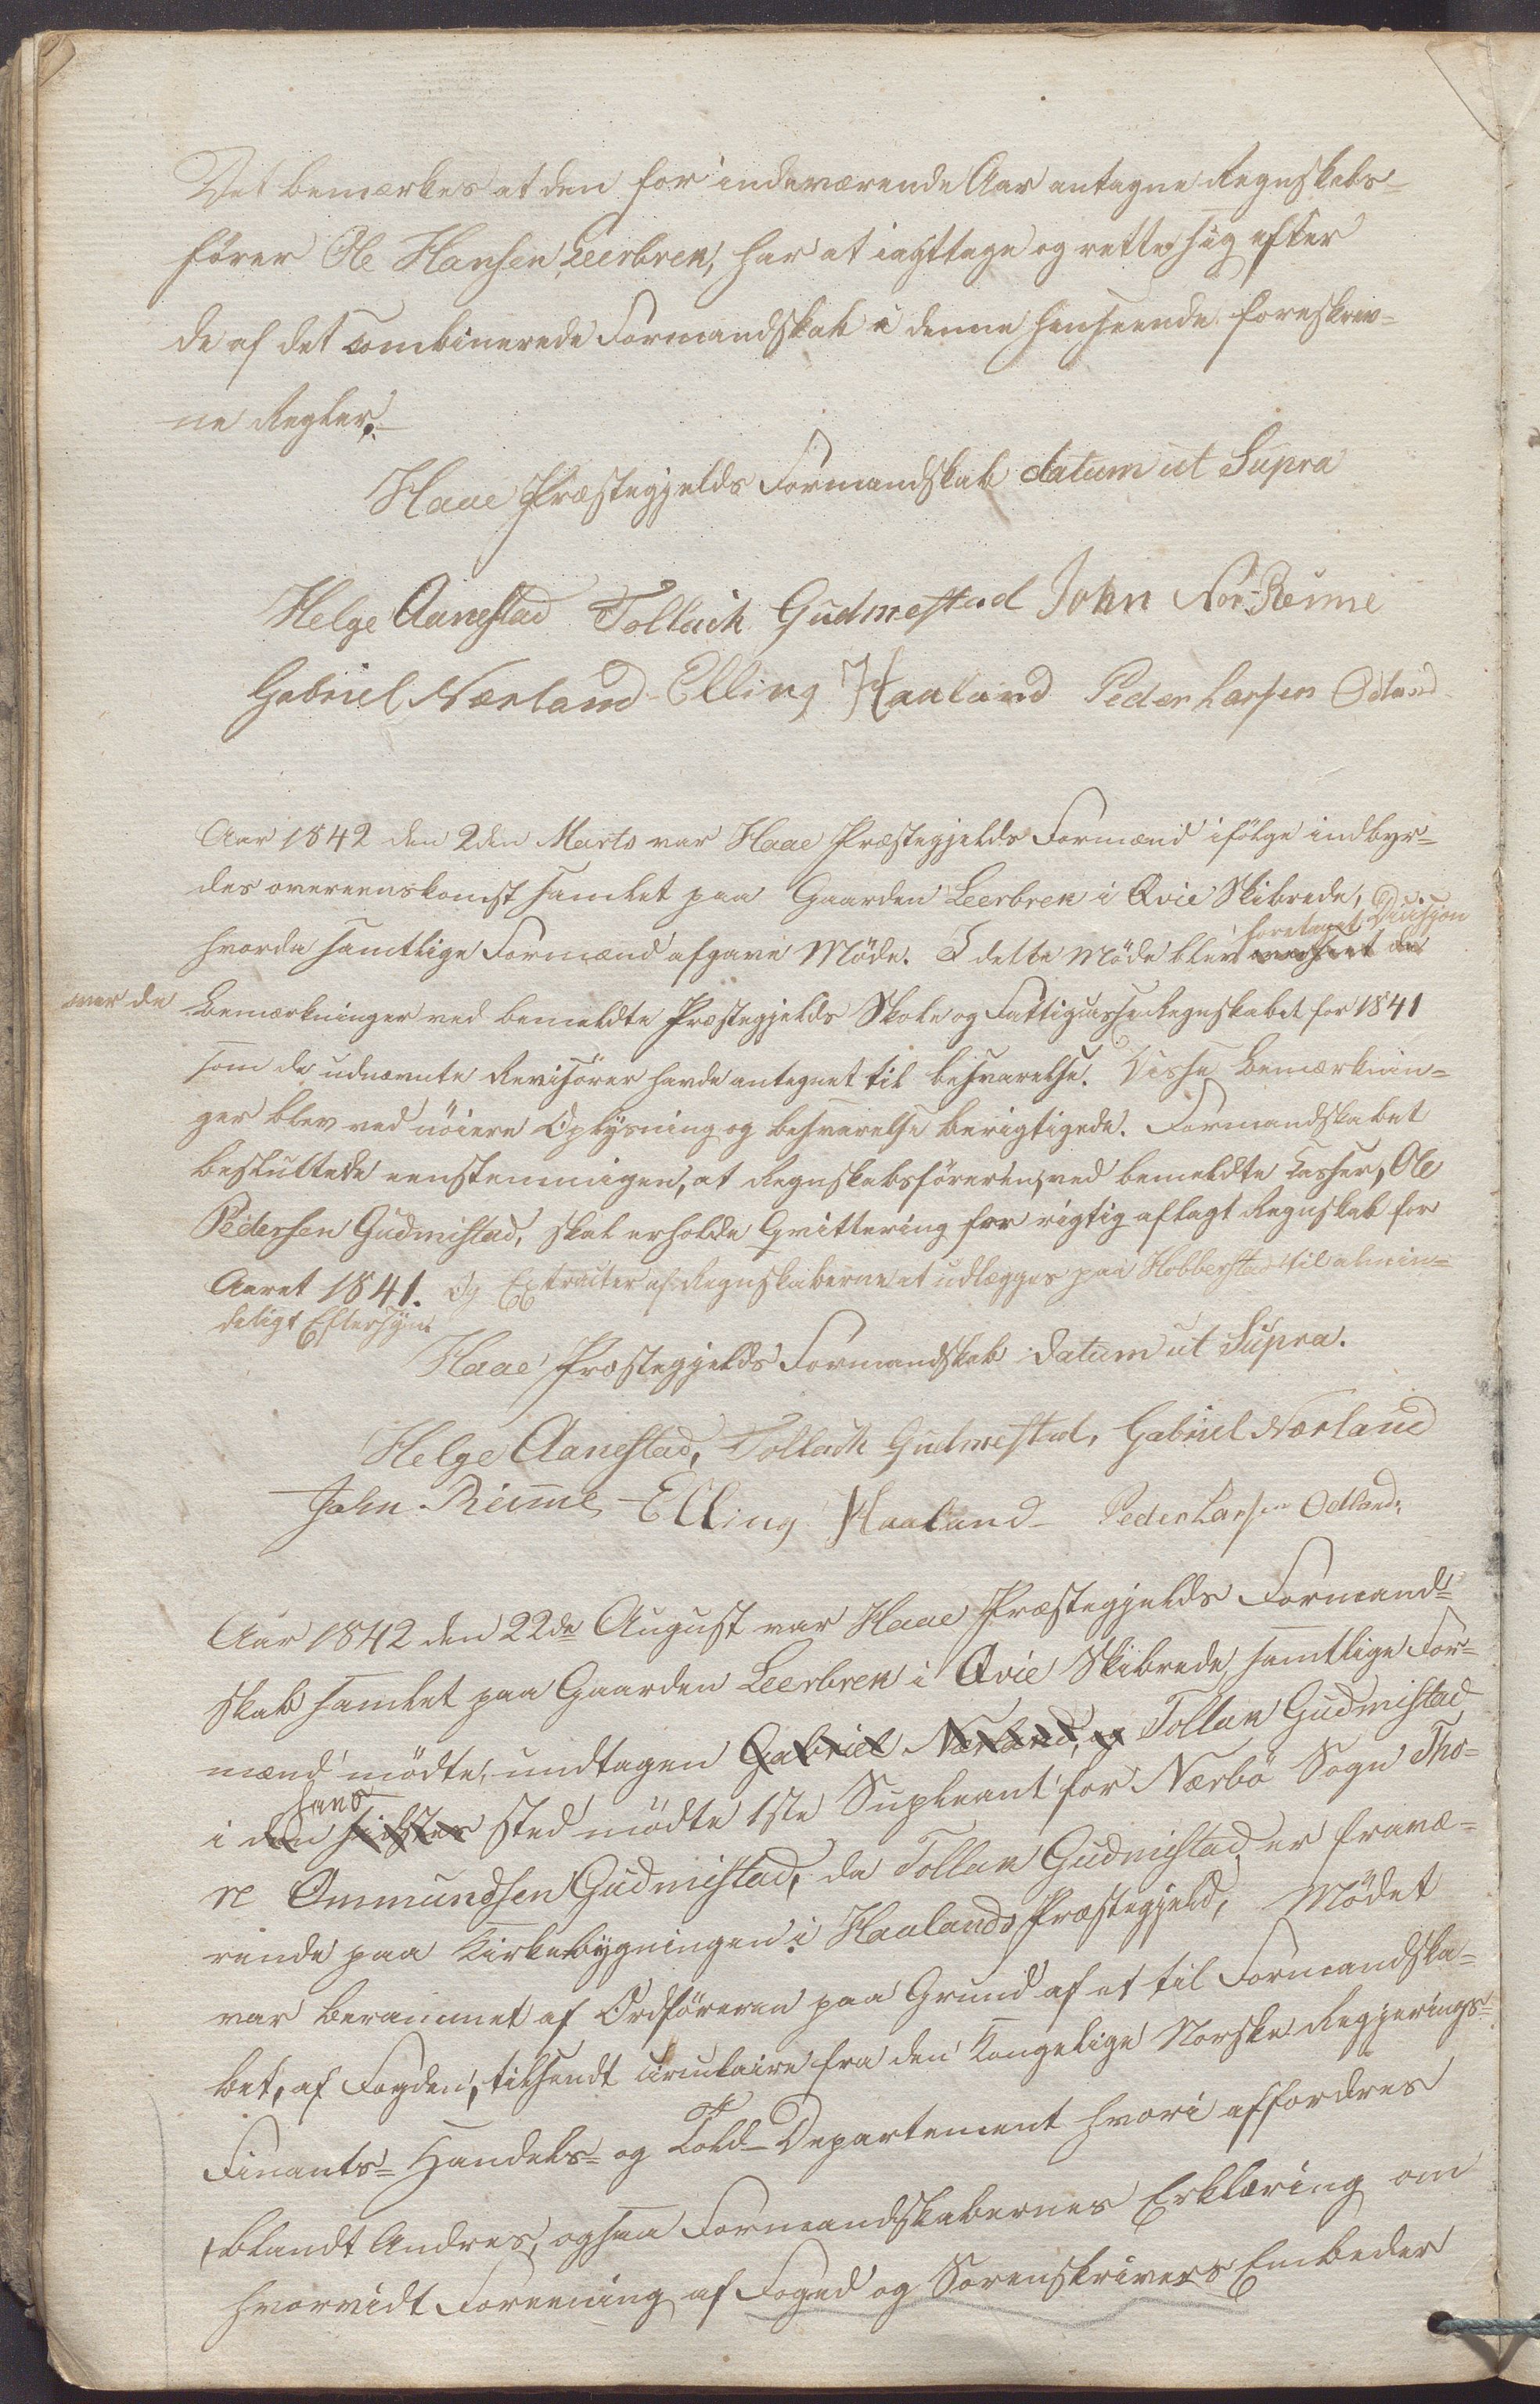 Det bemærkes at den for indeværende Aar antagne Regnskabs-
fører Ole Hansen Leerbrek, har at iagttage og rette sig efter
de af det combinerede Formandskab i denne Henseende foreskrev-
ne Regler.
Haae Præstegjelds Formandskab datum ut Supra
Helge Aanestad Tollach Gudmestad John Nor-Reime
Gabriel Nærland Elling Haaland Peder Larsen Ødland
Aar 1842 den 2den Marts var Haae Præstegjelds Formænd ifølge indbyr-
des overeenskomst samlet paa Gaarden Leerbrek i Qvie Skibrede,
foretaget Decision
hvorda samtlige Formænd afgave Møde. I dette Møde blev
over de Bemærkninger ved bemeldte Præstegjelds Skole og Fattigcasse Regnskabet for 1841
som de udnævnte Revisorer havde antegnet til besvarelse. Disse Bemærknin-
ger blev ved nöiere Oplysning og besvarelse berigtigede. Formandskabet
besluttede eenstemmigen, at Regnskabsføreren ved bemeldte Casser, Ole
Pedersen Gudmistad, skal erholde Qvittering for rigtig aflagt Regnskab for
Aaret 1841. og Extracter af Regnskaberne at udlægges paa Hobberstad til almin-
deligt Eftersyn.
Haae Præstegjelds Formandskab datum ut Supra.
Helge Aanestad, Tollach Gudmestad, Gabriel Nærland
John Reime Elling Haaland Peder Larsen Ødland.
Aar 1842 den 22de August var Haae Præstegjelds Formand-
skab samlet paa Gaarden Leerbrek i Qvie Skibrede, samtlige For-
mænd mødte, undtagen Gabriel Nærland, og Tollak Gudmistad
hans
i den sidstes sted mødte 1ste Supleant for Nærbö Sogn Tho-
re Ommundsen Gudmistad, da Tollak Gudmistad er fravæ-
rende paa Kirkebygningen i Haalands Præstegjeld, Mødet
var berammet af Ordføreren paa Grund af et til Formandska-
bet, af Fogden, tilsendt circulaire fra den Kongelige Norske Regjerings-
Finants- Handels- og Told-Departement hvori affordres
blandt Andres, ogsaa Formandskabernes Erklæring om
hvorvidt Forening af Foged og Sorenskrivers Embeder